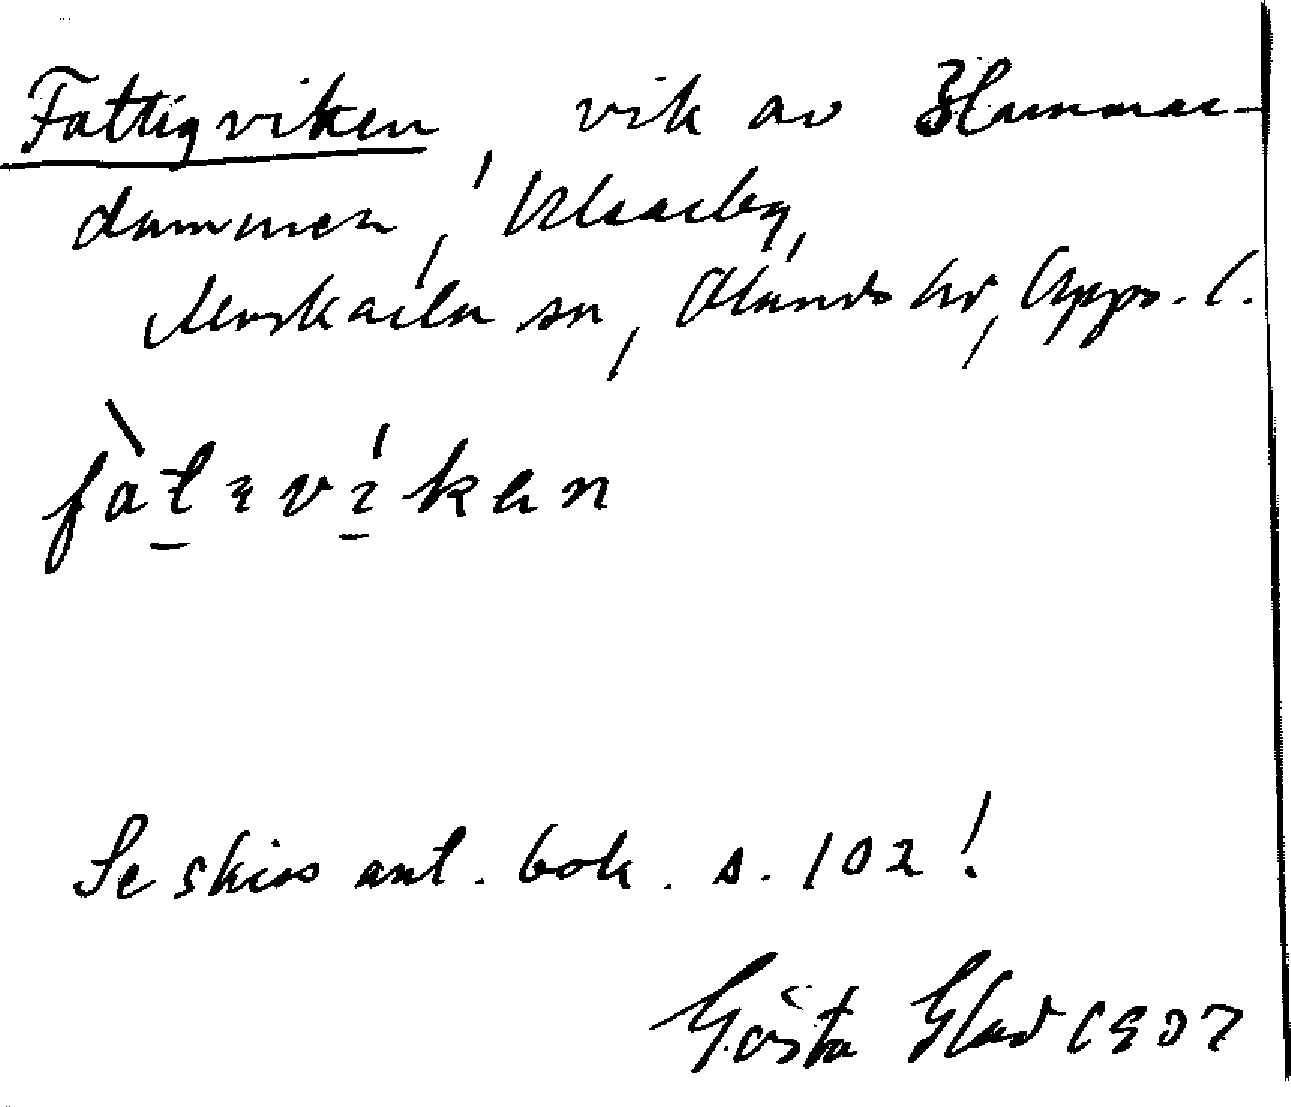 Fattigviken, vik av Hammar-
dammen,
Morkarla sn, Olands hd, Upps. l.
fàtivíkan
Se skiss ant. bok. s. 102!
Gösta Glad 1907